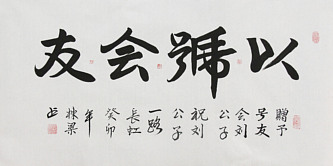 以號会友
赠予
号友
会刘
公子
祝刘
公子
一路
長虹
癸卯
年
棟梁